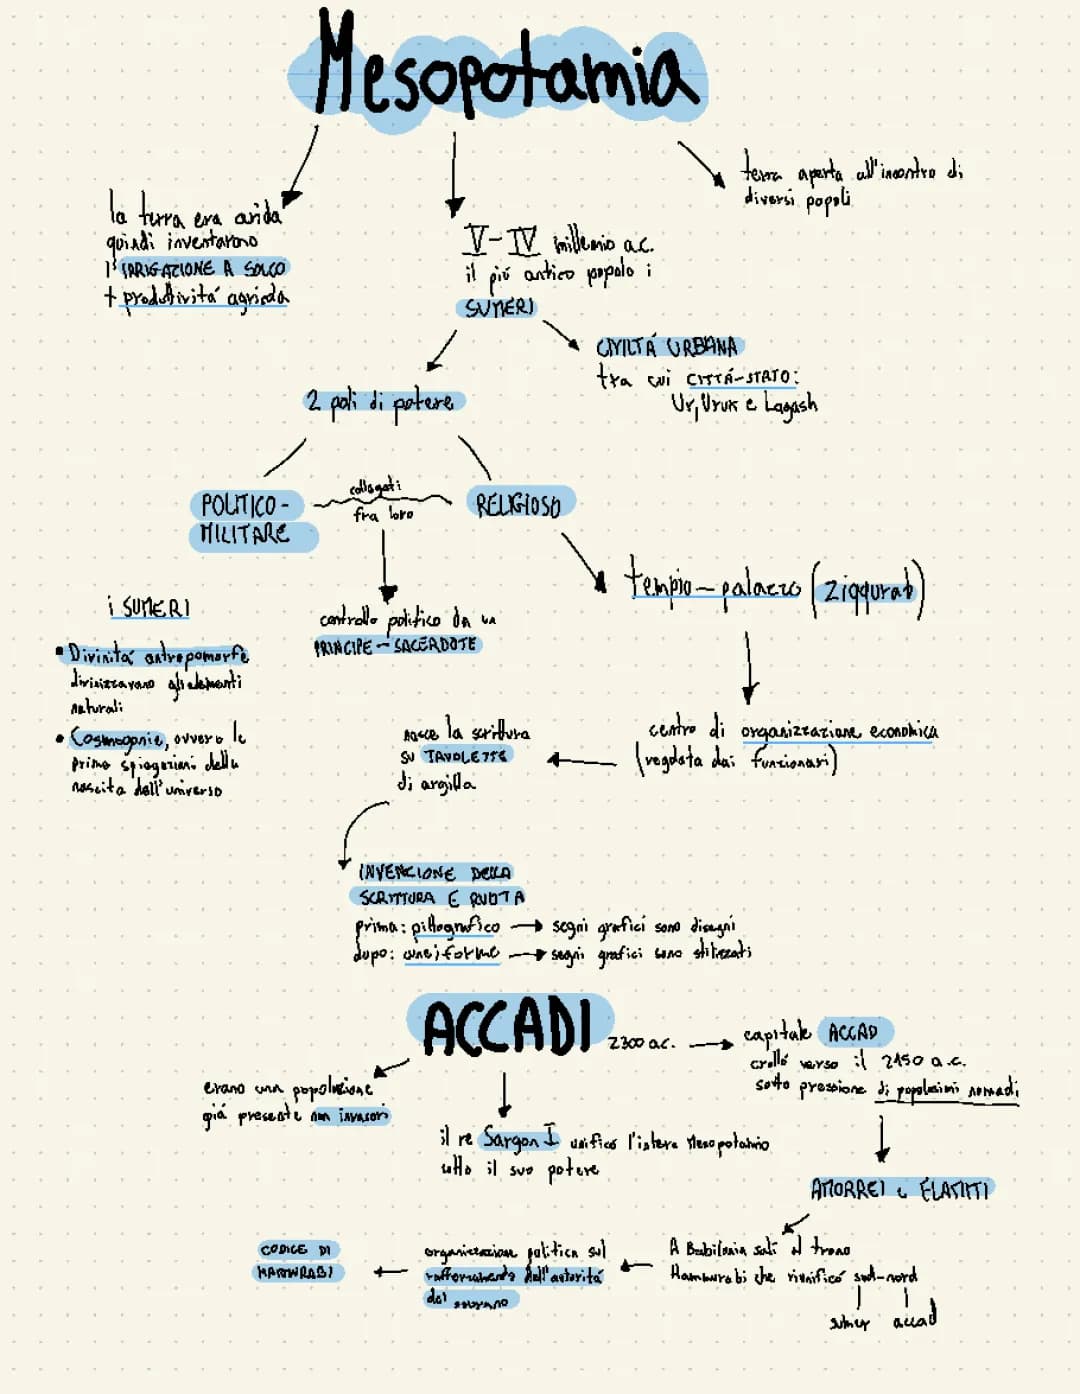 Mesopotamia
la terra era arida
quindi inventarono
l'IRRIGAZIONE A SOLCO
+ produttivitá agricola
V-IV millennio a.c.
il piú antico popolo i
SUMERI
terra aperta all'incontro di
diversi popoli
CIVILTÁ URBANA
tra cui CITTÁ-STATO:
Ur, Uruk e Lagash
2 poli di potere
POLITICO-
MILITARE
collegati
fra loro
RELIGIOSO
controllo politico da un
PRINCIPE-SACERDOTE
tempio-palazzo (ziqqurat)
i SUMERI
• Divinitá antropomorfe
divinizzavano gli elementi
naturali
• Cosmogonie, ovvero le
prime spiegazioni della
nascita dell'universo
centro di organizzazione economica
(regolata dai funzionari)
nasce la scrittura
su TAVOLETTE
di argilla
INVENZIONE DELLA
SCRITTURA E RUOTA
prima: pittografico → segni grafici sono disegni
dopo: cuneiforme → segni grafici sono stilizzati
ACCADI
2300 a.c. → capitale ACCAD
crolló verso il 2150 a.c.
sotto pressione di popolazioni nomadi
erano una popolazione
giá presente non invasori
il re Sargon I unificó l'intera Mesopotamia
sotto il suo potere
AMORREI e ELAMITI
A Babilonia salí al trono
Hammurabi che riunificó sud-nord
sumer accad
organizzazione politica sul
rafforzamento dell'autoritá
del sovrano
CODICE DI
HAMMURABI